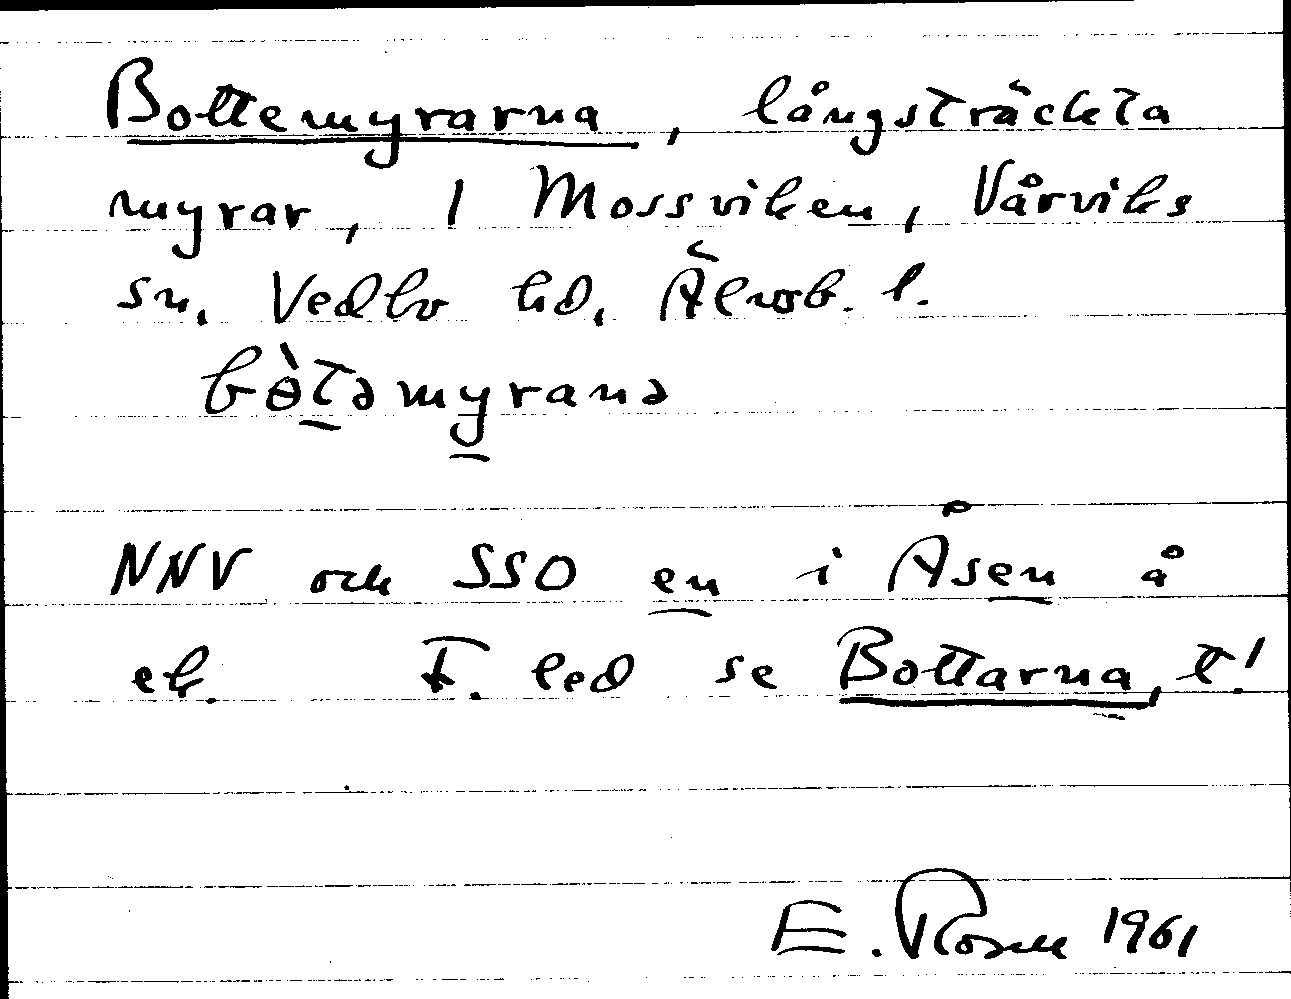 Bottemyrarna, långsträckta
myrar, 1 Mossviken, Vårviks
sn, Vedbo hd, Älvsb. l.
bɵ̀t̲əmy̲ranə
NNV och SSO en i Åsen å
ek. F. led se Bottarna, t!
E. Rosell 1961